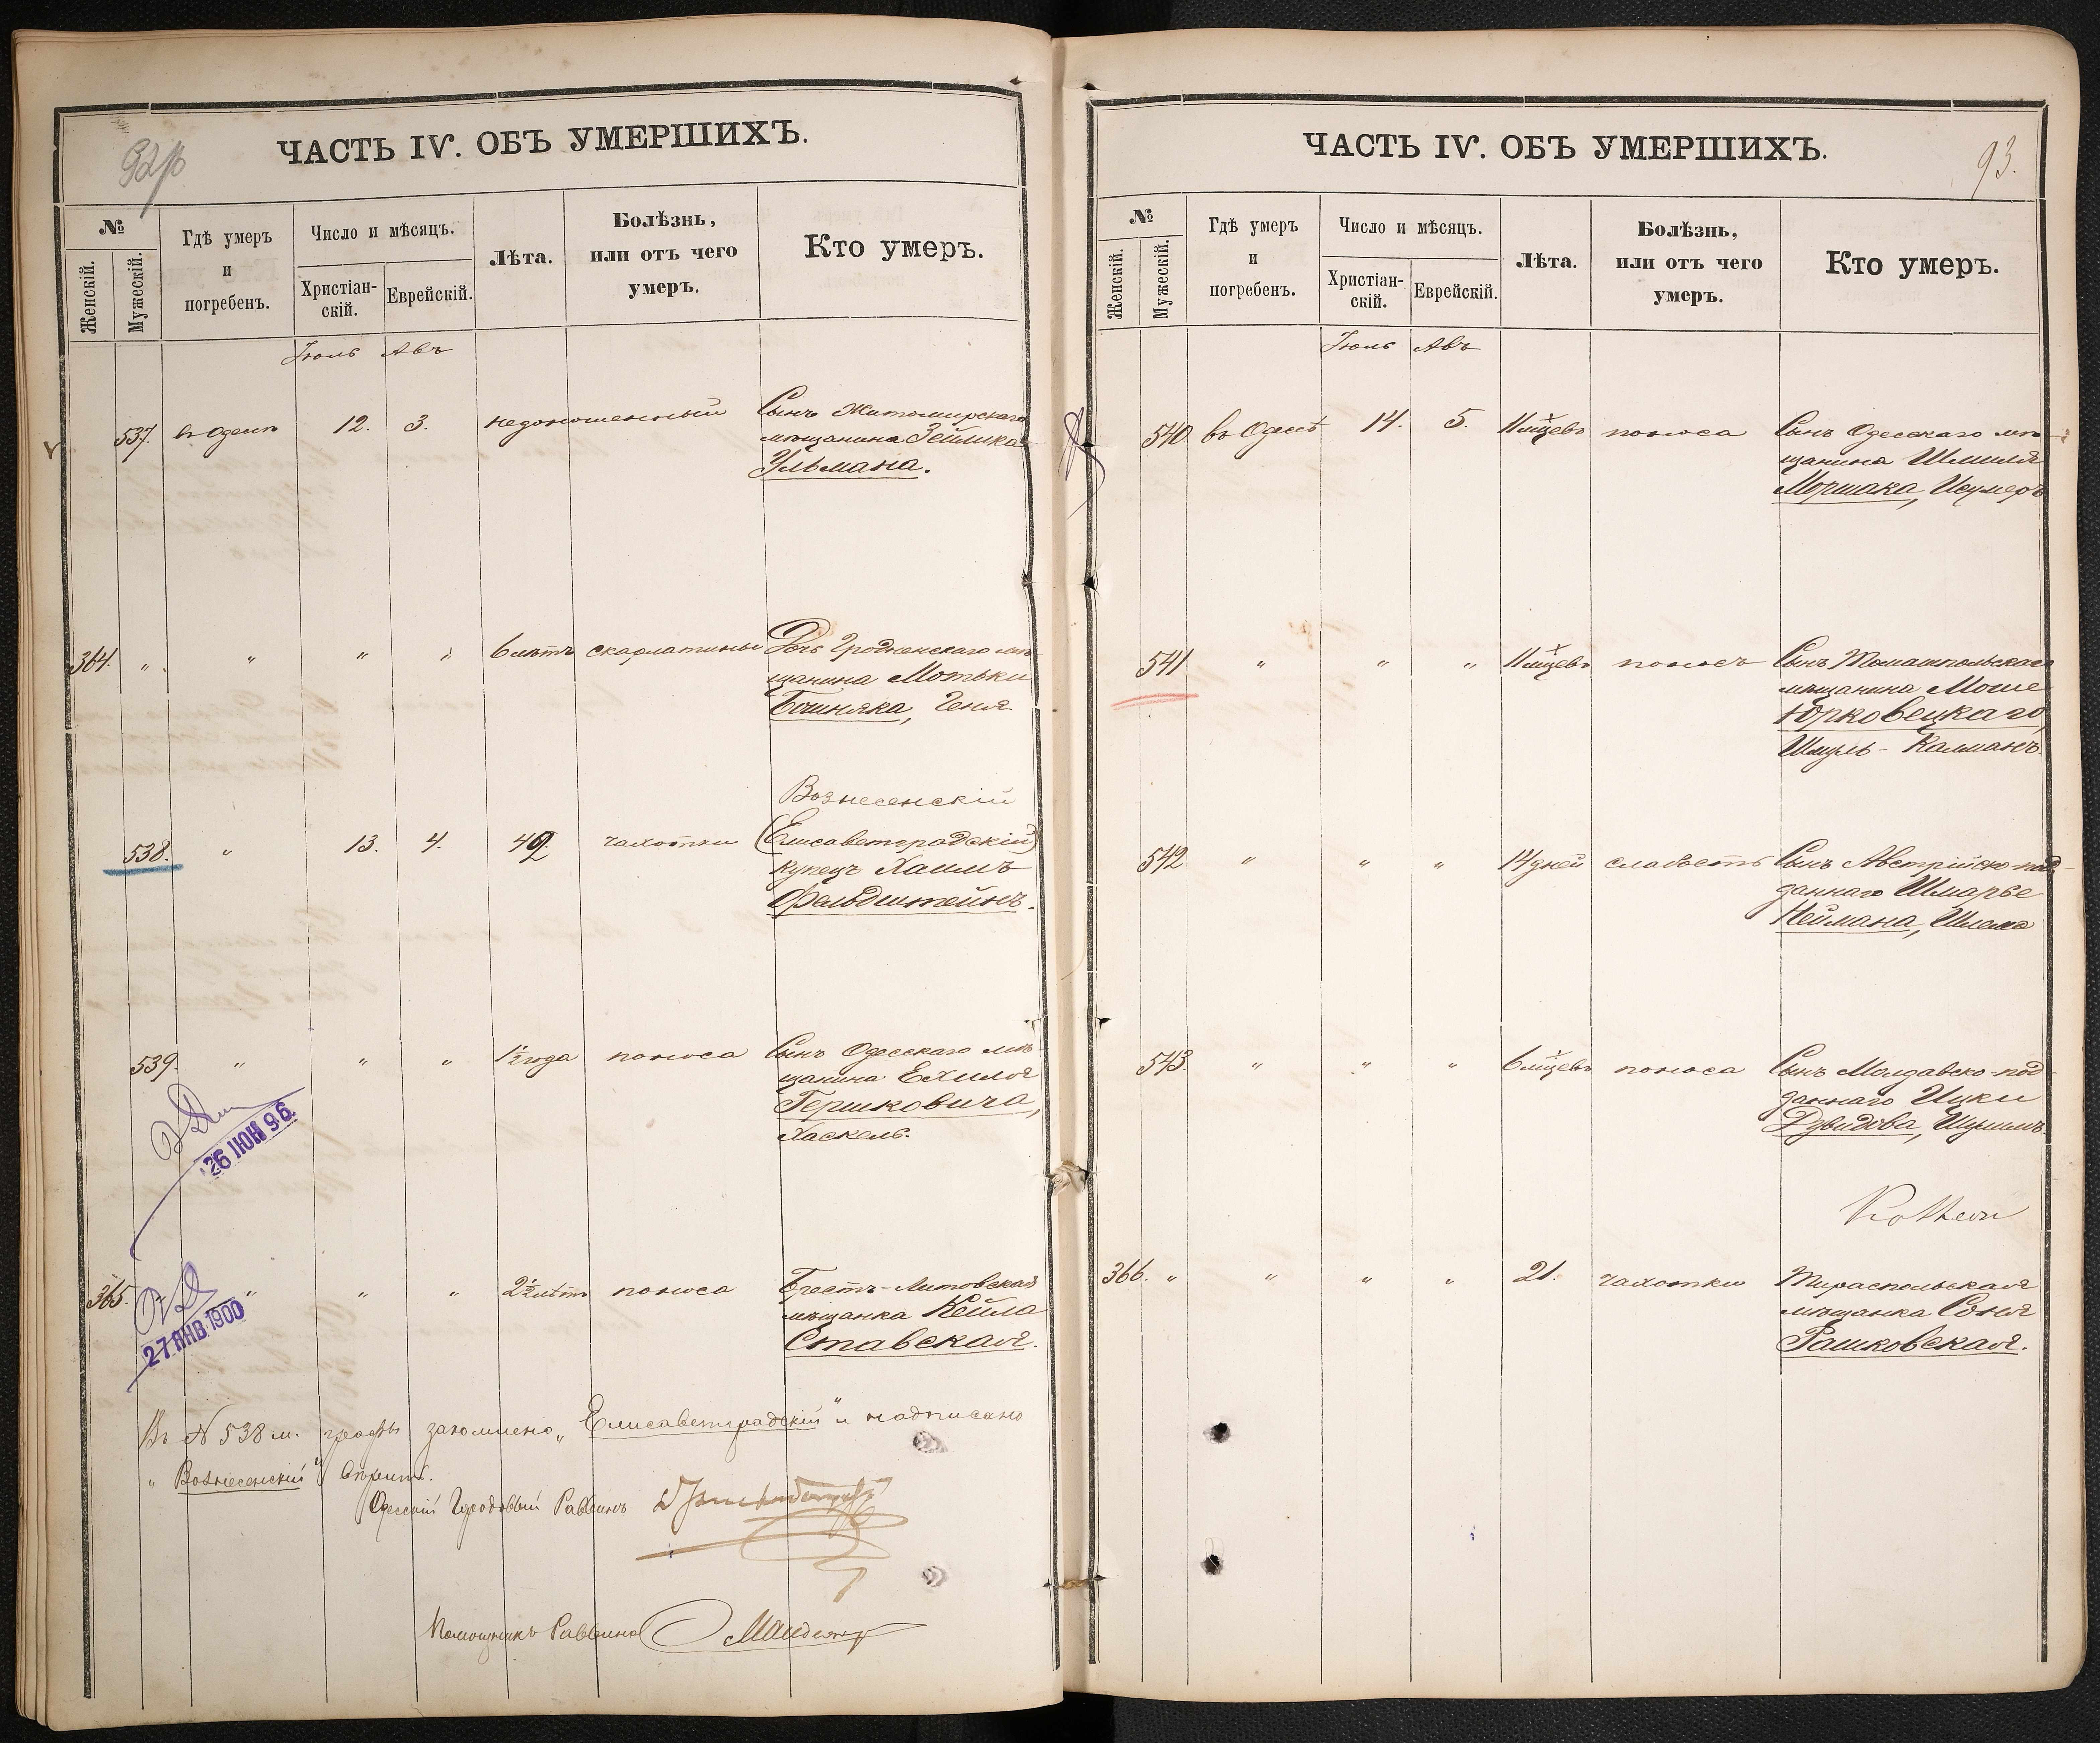 ЧАСТЬ IV. ОБЪ УМЕРШИХЪ.
№
Женскій.
Мужескій.
Гдѣ умеръ
и
погребенъ.
Число и мѣсяцъ.
Христіан-
скій.
Еврейскій.
Лѣта.
Болѣзнь,
или отъ чего
умеръ.
Кто умеръ.
Іюль Авъ
537. въ Одессѣ 12. 3. недоношенный Сынъ Житомирскаго
мѣщанина Зейлика
Ульмана.
364. " " " " 6 лѣтъ скарлатины Дочь Гродненскаго мѣ-
щанина Мотьки
Бошняка, Геня.
Вознесенскій
538. " 13. 4. 42 чахотки (Елисаветградскій)
купецъ Хаимъ
Фельдштейнъ.
539. " " " 1½ года поноса Сынъ Одесскаго мѣ-
щанина Ехиля
Гершковича,
Хаскель.
26 ІЮН 96
365. " " " 2½ лѣтъ поноса Брестъ-Литовская
мѣщанка Кейла
Ставская.
27 ЯНВ. 1900
Въ № 538 м. графы заломлено "Елисаветградскій" и надписано
"Вознесенскій"
Одесскій Городовой Раввинъ
Помощникъ Раввина
ЧАСТЬ IV. ОБЪ УМЕРШИХЪ.
93.
№
Женскій.
Мужескій.
Гдѣ умеръ
и
погребенъ.
Число и мѣсяцъ.
Христіан-
скій.
Еврейскій.
Лѣта.
Болѣзнь,
или отъ чего
умеръ.
Кто умеръ.
Іюль Авъ
540. въ Одессѣ 14. 5. 11 мѣцевъ поноса Сынъ Одесскаго мѣ-
щанина Шмиля
Моршака, Исумеръ
541 " " " 11 мѣцевъ поносъ Сынъ Томашпольскаго
мѣщанина Моше
Юрковецкаго,
Шмуль-Калманъ.
542 " " " 14 дней слабость Сынъ Австрійско-под-
даннаго Шмарье
Неймана, Шлема
543. " " " 6 мѣцевъ поноса Сынъ Молдавско-под-
даннаго Ицки
Давидова,
366. " " " " 21. чахотки Тираспольская
мѣщанка Соня
Рашковская.